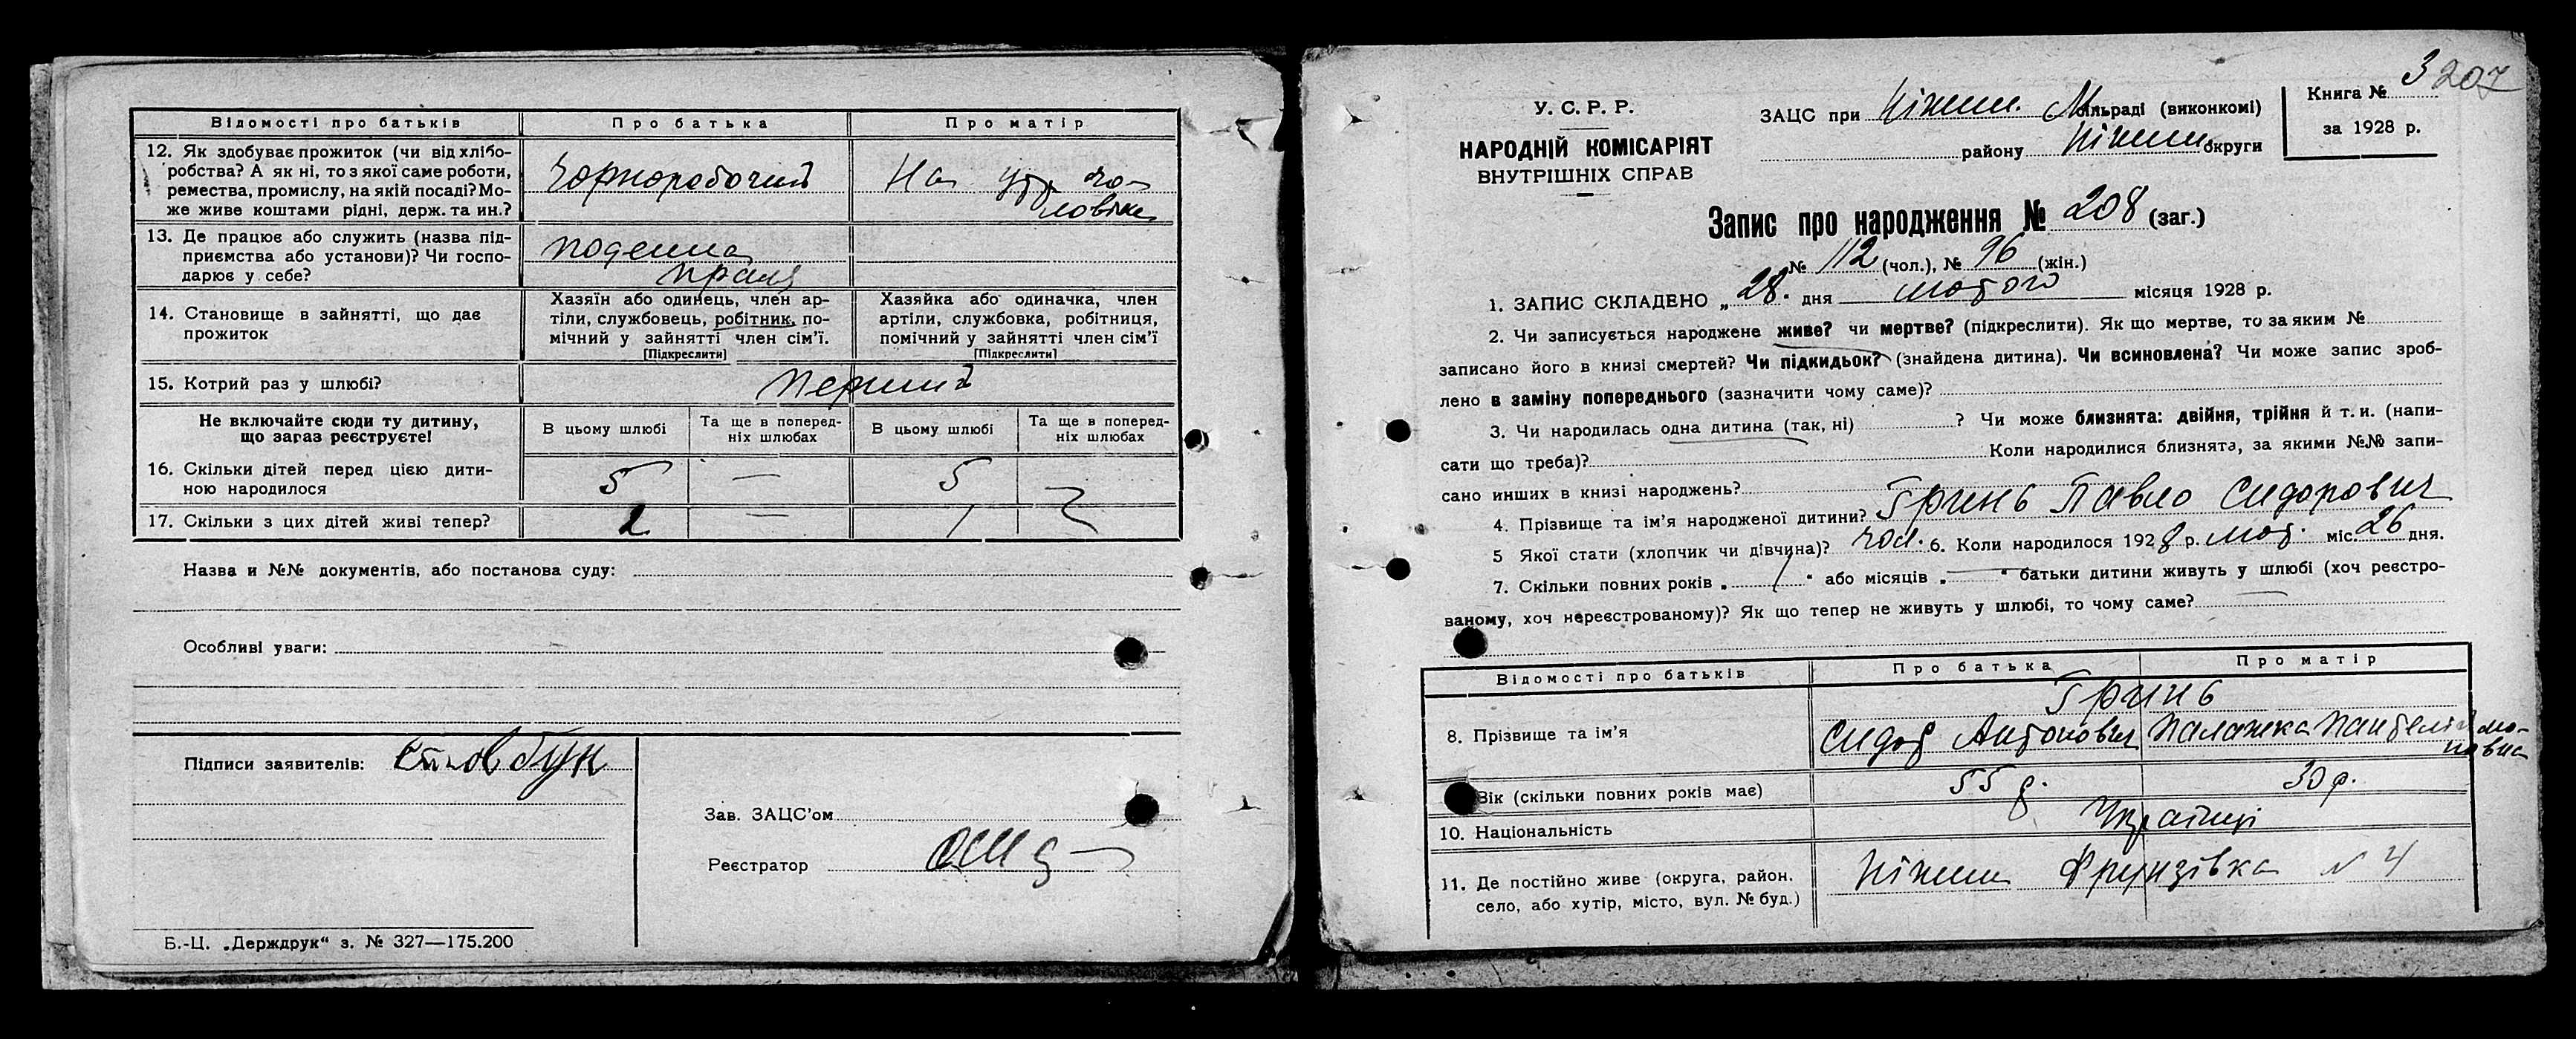 Відомості про батьків Про батька Про матір
12. Як здобуває прожиток (чи від хлібо-
робства? А як ні, то з якої саме роботи,
ремества, промислу, на якій посаді? Мо-
же живе коштами рідні, держ. та ин.?
Чорноробочий
На утр. чо-
ловіка
13. Де працює або служить (назва під-
приємства або установи)? Чи госпо-
дарює у себе?
поденна
праця
14. Становище в зайнятті, що дає
прожиток
Хазяїн або одинець, член ар-
тіли, службовець, робітник, по-
мічний у зайнятті член сім'ї.
[Підкреслити]
Хазяйка або одиначка, член
артіли, службовка, робітниця,
помічний у зайнятті член сім'ї
[Підкреслити]
15. Котрий раз у шлюбі? перший
Не включайте сюди ту дитину,
що загаз реєструєте!
В цьому шлюбі
Та ще в поперед-
ніх шлюбах
В цьому шлюбі
Та ще в поперед-
ніх шлюбах
16. Скільки дітей перед цією дити-
ною народилося
5 — 5
17. Скільки з цих дітей живі тепер? 2 —
Назва и №№ документів, або постанова суду:
Особливі уваги:
Підписи заявителів: Стовбун
Зав. ЗАЦС'ом
Реєстратор
Б.-Ц. „Держдрук“ з. № 327—175.200
207
У. С. Р. Р.
НАРОДНІЙ КОМІСАРІЯТ
ВНУТРІШНІХ СПРАВ
ЗАЦС при Ніжин. Міільраді (виконкомі)
району Ніжин. округи
Книга № 3
за 1928 р.
Запис про народження № 208 (заг.)
№ 112 (чол.), № 96 (жін.)
1. ЗАПИС СКЛАДЕНО „28. дня лютого місяця 1928 р.
2. Чи записується народжене живе? чи мертве? (підкреслити). Як що мертве, то за яким №
записано його в книзі смертей? Чи підкидьок? (знайдена дитина). Чи всиновлена? Чи може запис зроб-
лено в заміну попереднього (зазначити чому саме)?
3. Чи народилась одна дитина (так, ні) ? Чи може близнята: двійня, трійня й т. и. (напи-
сати що треба)? Коли народилися близнята, за якими №№ запи-
сано инших в книзі народжень?
4. Прізвище та ім'я народженої дитини? Гринь Павло Сидорович
5 Якої стати (хлопчик чи дівчина)? чол. 6. Коли народилося 1928 р. лют. міс. 26 дня.
7. Скільки повних років „ “ або місяців „ “ батьки дитини живуть у шлюбі (хоч реєстро-
ваному, хоч нереєстрованому)? Як що тепер не живуть у шлюбі, то чому саме?
Відомості про батьків Про батька Про матір
8. Прізвище та ім'я
Гринь
Сидор Антонович
Палажка Пантелеймо-
новна
Вік (скільки повних років має) 55 р. 30 р.
10. Національність Українці
11. Де постійно живе (округа, район,
село, або хутір, місто, вул. № буд.)
Ніжин Фрунзівка № 4